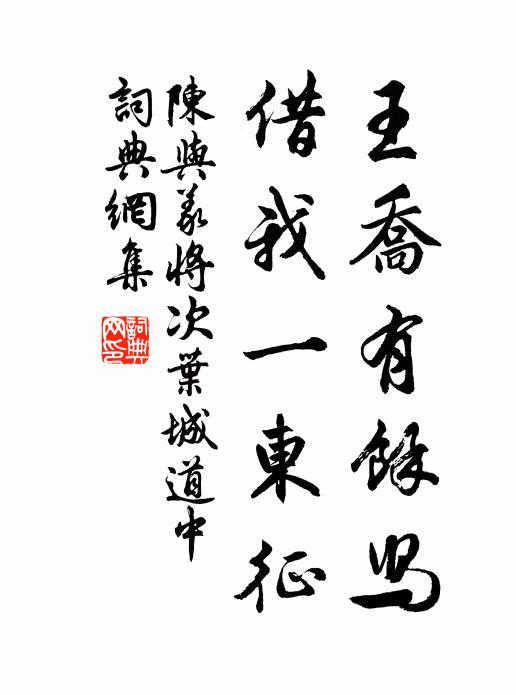 王喬有餘舃
借我一東征
陳與義將次葉城道中
詞典網集
詞典網印